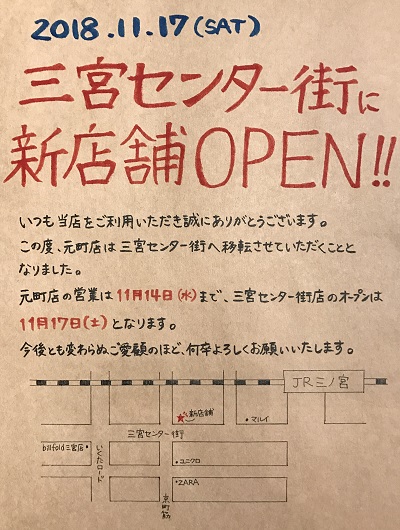 2018.11.17(SAT)
三宮センター街に
新店舗OPEN!!
いつも当店をご利用いただき誠にありがとうございます。
この度、元町店は三宮センター街へ移転させていただくことと
なりました。
元町店の営業は11月14日(水)まで、三宮センター街店のオープンは
11月17日(土)となります。
今後とも変わらぬご愛顧のほど、何卒よろしくお願いいたします。
JR三ノ宮
新店舗
マルイ
三宮センター街
billfold三宮店
いくたロード
ユニクロ
ZARA
京町筋